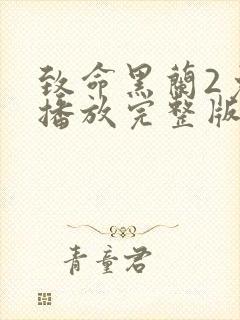 致命黑蘭2
播放完整版
青童君